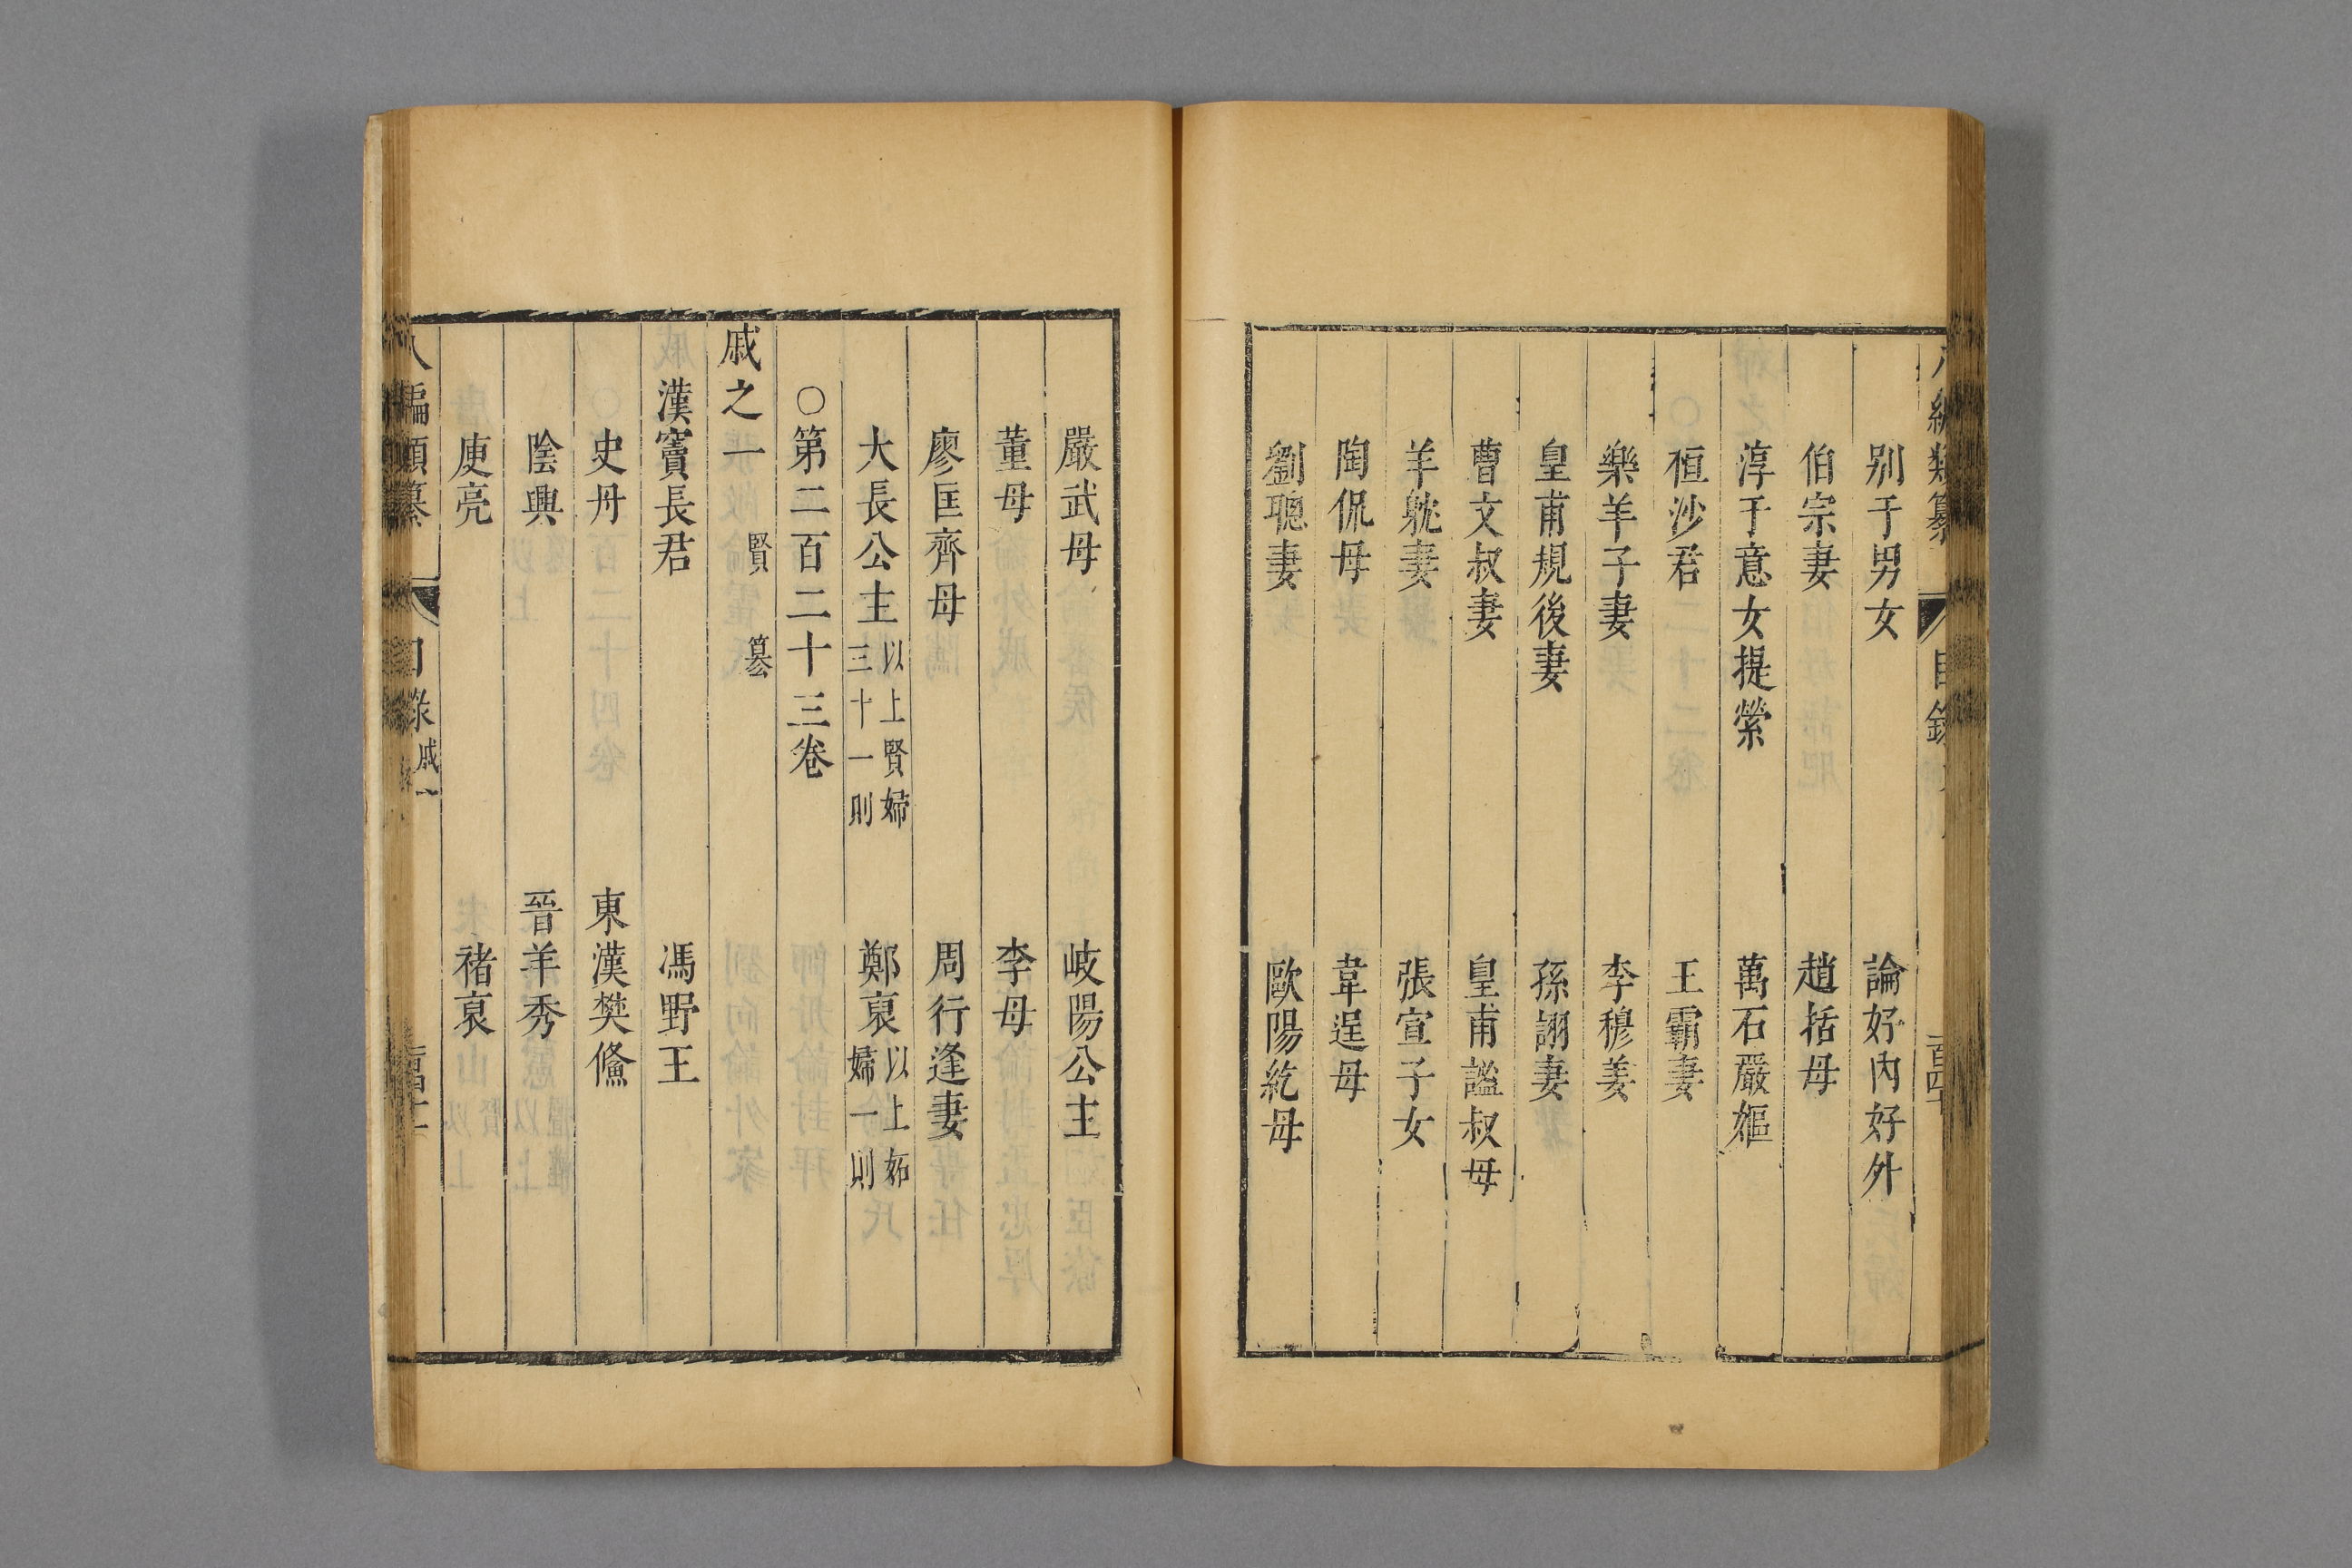 別于男女　論好內好外
伯宗妻　趙括母
淳于意女提縈　萬石嚴嫗
桓沙君　王霸妻
樂羊子妻　李穆姜
皇甫規後妻　孫翊妻
曹文叔妻　皇甫謐叔母
羊躭妻　張宣子女
陶侃母　韋逞母
劉聰妻　歐陽紇母
嚴武母　岐陽公主
董母　李母
廖匡齊母　周行逢妻
大長公主以上賢婦三十一則　鄭袤以上妬婦一則
○第二百二十三卷
戚之一　賢　簒
漢竇長君　馮野王
史丹　東漢樊鯈
陰興　晉羊秀
庾亮　褚裒
八編類纂　目錄　戚一